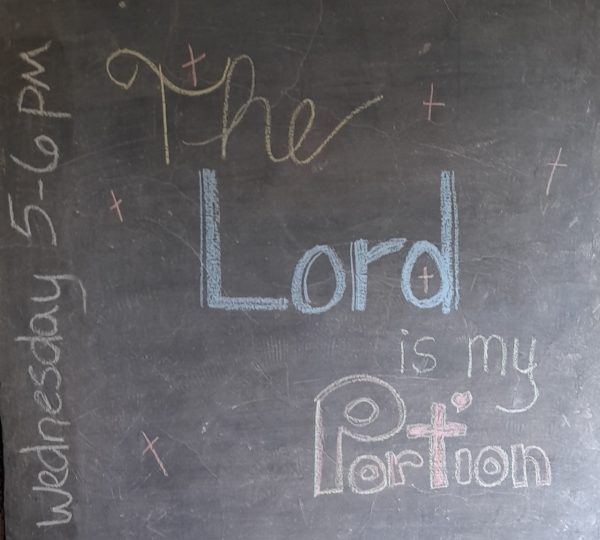 Wednesday 5-6 PM
The
Lord
is my
Portion